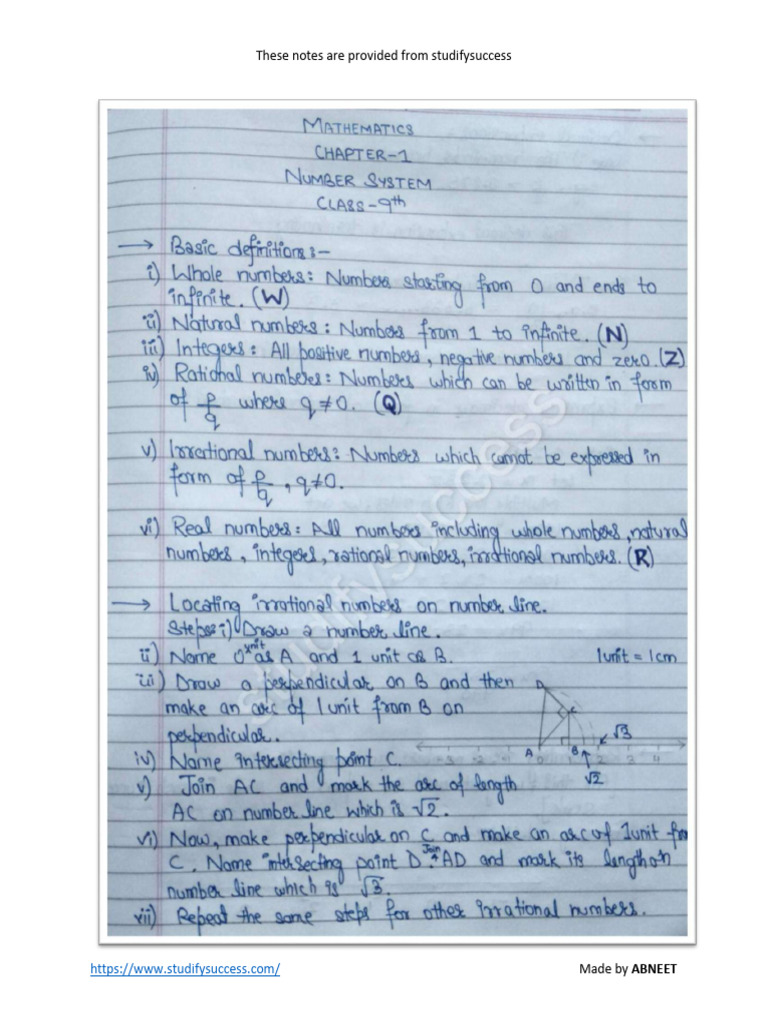 These notes are provided from studifysuccess
MATHEMATICS
CHAPTER-1
NUMBER SYSTEM
CLASS-9th
→ Basic definitions:-
i) Whole numbers: Numbers starting from 0 and ends to
infinite. (W)
ii) Natural numbers: Numbers from 1 to infinite. (N)
iii) Integers: All positive numbers, negative numbers and zero. (Z)
iv) Rational numbers: Numbers which can be written in form
of p/q where q≠0. (Q)
v) Irrational numbers: Numbers which cannot be expressed in
form of p/q, q≠0.
vi) Real numbers: All numbers including whole numbers, natural
numbers, integers, rational numbers, irrational numbers. (R)
→ Locating irrational numbers on number line.
Steps: i) Draw a number line.
ii) Name 0 unit as A and 1 unit as B. 1unit = 1cm
iii) Draw a perpendicular on B and then
make an arc of 1unit from B on
perpendicular.
iv) Name intersecting point C.
v) Join AC and mark the arc of length
AC on number line which is √2.
vi) Now, make perpendicular on C and make an arc of 1unit from
C. Name intersecting point D. Join AD and mark its length on
number line which is √3.
vii) Repeat the same steps for other irrational numbers.
D
C
√3
A 0 1 B 2 3 4
√2
studifysuccess
https://www.studifysuccess.com/ Made by ABNEET